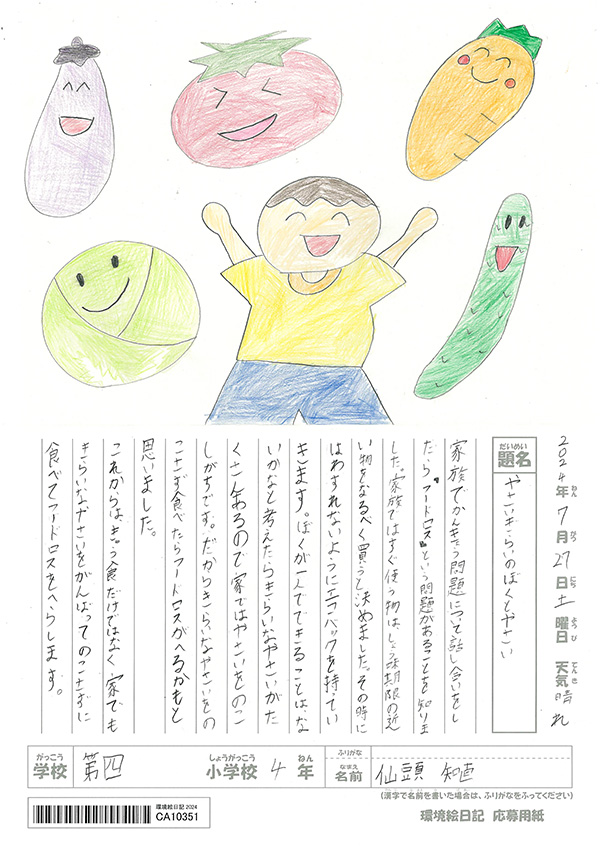 2024年ねん7月がつ27日にち土曜日ようび 天気てんき晴れ
だいめい
題名
やさいぎらいのぼくとやさい
家族でかんきょう問題について話し合いをし
たら"フードロス"という問題があることを知りま
した。家族ではすぐ使う物は、しょう味期限の近
い物をなるべく買うと決めました。その時に
はわすれないようにエコバックを持てい
きます。ぼくが一人でできることはな
いかなと考えたらきらいなやさいがた
くさんあるので家ではやさいをのこ
しがちです。だからきらいなやさいをの
こさず食べたらフードロスがへるかもと
思いました。
これからは、きゅう食だけではなく家でも
きらいなやさいをがんばってのこさずに
食べてフードロスをへらします。
がっこう
学校
第四
しょうがっこう
小学校
4
ねん
年
ふりがな
なまえ
名前
仙頭
(漢字で名前を書いた場合は、ふりがなをふってください)
環境絵日記 2024
CA10351
環境絵日記 応募用紙